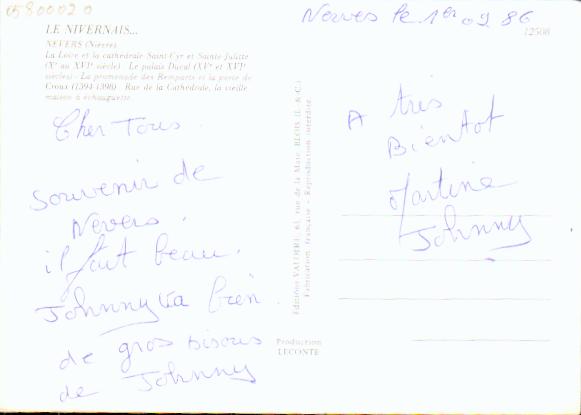 0580002 0
LE NIVERNAIS...
NEVERS (Nièvre)
La Loire et la cathédrale Saint-Cyr et Sainte-Julitte
(Xe au XVIe siècle) - Le palais Ducal (XVe et XVIe
siècles) - La promenade des Remparts et la porte de
Croux (1394-1398) - Rue de la Cathédrale, la vieille
maison à échauguette.
Cher Tous
Souvenir de
Nevers.
il fait beau.
Johnny va bien
de gros bisous
de Johnny
Editions VALOIRE, 61, rue de la Mare, BLOIS (L.-&-C.)
Fabrication française - Reproduction interdite
Production
LECONTE
Nevers le 1er 09 86
12508
A très
Bientot
Martine
Johnny